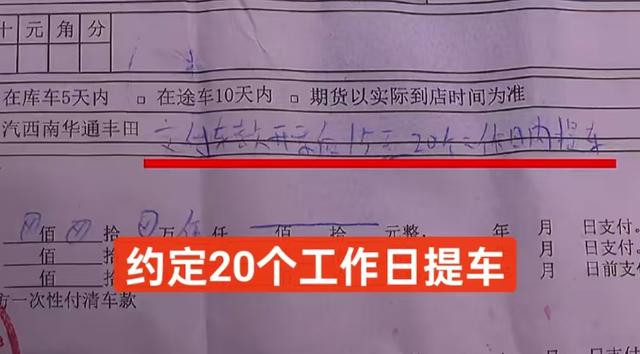 十元角分
在库车5天内 □ 在途车10天内 □ 期货以实际到店时间为准
汽西南华通丰田 交付车款开票后15至20个工作日内提车
佰 拾 万 仟 佰 拾 元整, 年 月 日支付.
佰 拾 月 日支付.
佰 拾 月 日前支
约定20个工作日提车
方一次性付清车款